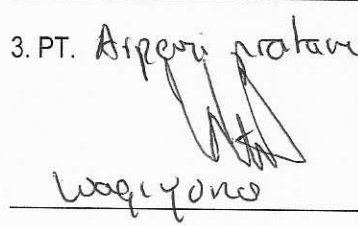 3. PT. Arpeni pratam
Wagiyono